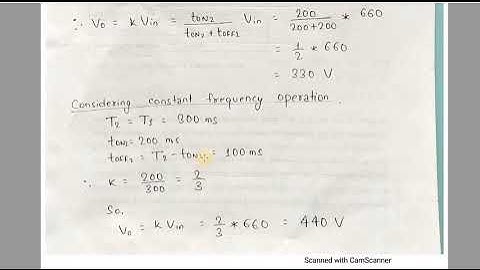 ∴ V₀ = k Vin = tON2 / (tON2 + tOFF2) Vin = 200 / (200+200) * 660
= 1/2 * 660
= 330 V
Considering constant frequency operation.
T₂ = T₁ = 300 ms
tON2 = 200 ms
tOFF2 = T₂ - tON2 = 100 ms
∴ k = 200/300 = 2/3
So,
V₀ = k Vin = 2/3 * 660 = 440 V
Scanned with CamScanner